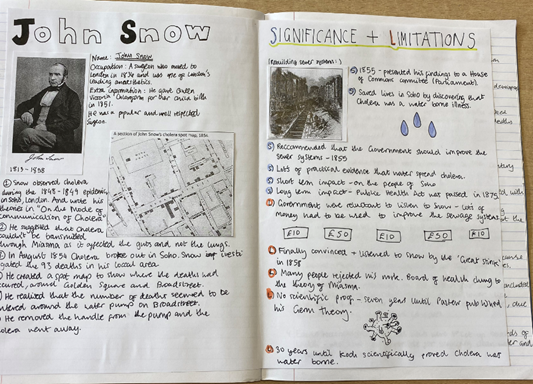 John Snow
Name: John Snow
Occupation: A surgeon who moved to
London in 1836 and was one of London's
leading anaesthetists.
Extra Information: He gave Queen
Victoria Chloroform for her child birth
in 1851.
He was a popular and well respected
surgeon.
John Snow
1813-1858
A section of John Snow's cholera spot map, 1854.
① Snow observed cholera
during the 1848-1849 epidemic
in Soho, London. And wrote his
theories in "On the Mode of
Communication of Cholera"
② He suggested that Cholera
couldn't be transmitted
through Miasma as it affected the guts and not the lungs.
In August 1854 Cholera broke out in Soho. Snow
the 93 deaths in his local area.
He created a spot map to show where the deaths had
occured around Golden Square and Broadstreet.
He realised that the number of deaths seemed to be
centered around the water pump on Broadstreet.
He removed the handle from the pump and the
cholera went away.
SIGNIFICANCE + LIMITATIONS
(rebuilding sewer systems:)
Ⓢ 1855 - presented his findings to a House
of Commons committee (Parliament).
Ⓢ Saved lives in Soho by discovering that
cholera was a water borne illness.
Ⓢ Reccommended that the Government should improve the
sewer systems - 1855
Ⓢ Lots of practical evidence that water spend cholera.
Ⓢ Short term impact - on the people of Soho
Ⓢ Long term impact - Public Health Act was passed in 1875
Ⓛ Government were reluctant to listen to Snow - Lots of
money had to be used to improve the sewage systems
£10
£50
£10
£50
£10
Finally convinced - listened to Snow by the 'Great Stink'
in 1858
Many people rejected his work. Board of health clung to
the theory of Miasma.
No scientific proof - seven years until Pasteur published
his Germ Theory.
30 years until Koch scientifically proved cholera was
water borne.